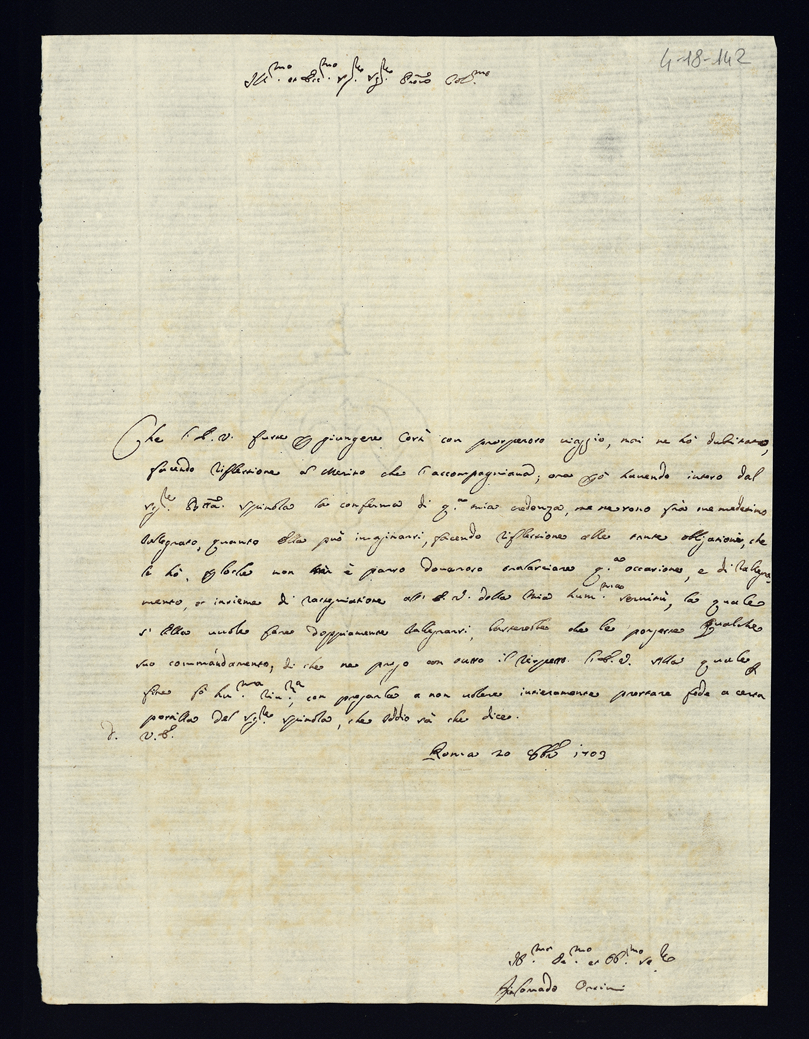 4-18-142
Ill.mo et Ecc.mo Sig.re Sig.re Prone Col.mo
Che l'E.V. fusse p giungere costì con prosperoso viaggio, mai ne hò dubitato,
facendo riflessione al merito che l'accompagniava; ora p hò havendo inteso dal
Sig.re Spinola la conferma di q.a mia credenza, me ne sono frà me medesimo
ralegrato, quanto Ella può imaginarsi, facendo riflessione alle tante obligationi, che
le hò, p loche non mi è parso doversi tralasciare q.a occasione, e di ralegra-
mento, et insieme di rassegniatione all'E.V. della mia hum.ma servitù, la quale
s'Ella vuole fare doppiamente ralegrarsi, basterebbe che le porgesse qualche
suo commandamento, di che ne prego con tutto il rispetto l'E.V. alla quale p
fine fò hu.ma riu.za, con pregarla a non volere interamente prestare fede a certa
postilla del Sig.re Spinola, che Iddio sà che dice.
D. V.E.
Roma 20 8bre 1703
Um.mo De.mo et Ob.mo Se.re
Orsini